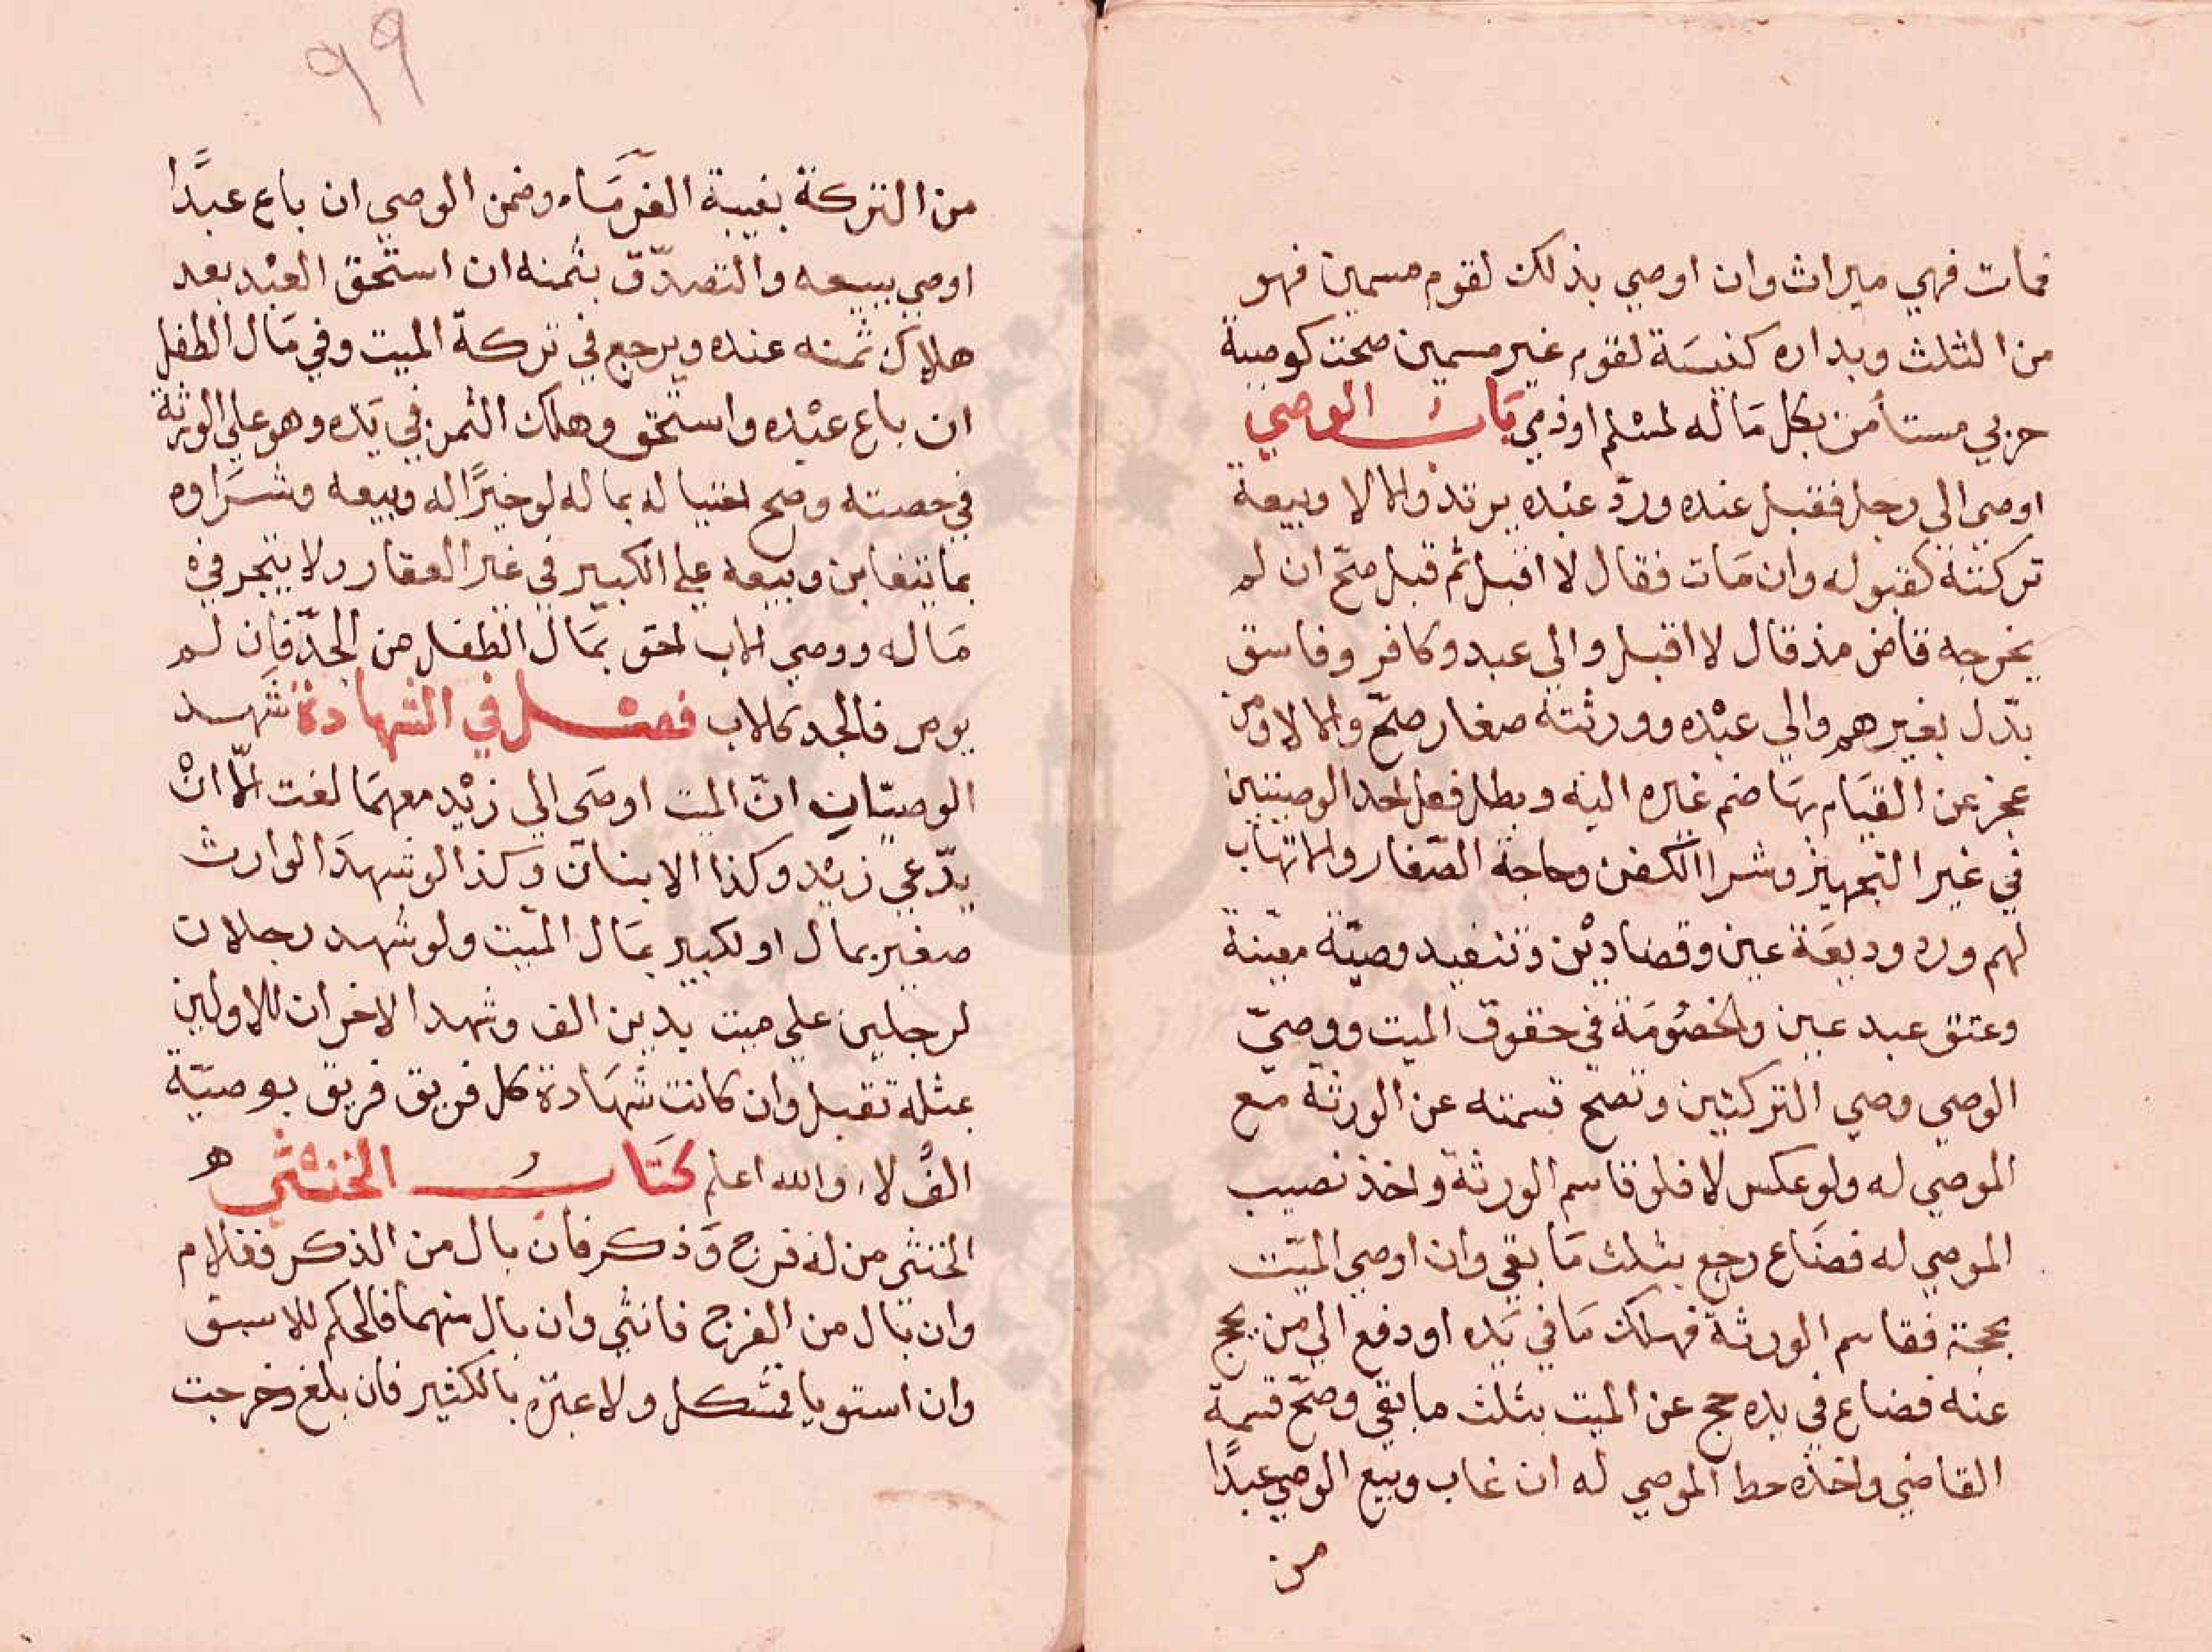 فمات فهي ميراث وان اوصي بذلك لقوم مسمين فهو
من الثلث وبداره كنيسة لقوم غير مسمين صحت كوصية
حربي مستأمن بكل ماله لمسلم او ذمي باب الوصي
اوصي الي رجل فقبل عنده وردّ عنده يرتد والا لا وبيعة
تركته كقبوله وان مات فقال لا اقبل ثم قبل صحّ ان لم
يخرجه قاض مذ قال لا اقبل والي عبد وكافر وفاسق
بدّل بغيرهم والي عبده وورثته صغار صحّ والا لا ومن
عجز عن القيام بها ضم غيره اليه وبطل فعل احد الوصيين
في غير التجهيز وشرا الكفن وحاجة الصغار والاتهاب
لهم ورد وديعة عين وقضا دين وتنفيد وصيّة معيّنة
وعتق عبد عين والخصومة في حقوق الميت ووصيّ
الوصي وصي التركتين وتصح قسمته عن الورثة مع
الموصي له ولو عكس لا فلو قاسم الورثة واخذ نصيب
الموصي له فضاع رجع بثلث ما بقي وان اوصي الميّت
بحجة فقاسم الورثة فهلك ما في يده او دفع الي من يحج
عنه فضاع في يده حج عن الميت بثلث ما بقي وصحّ قسمة
القاضي واخذه حط الموصي له ان غاب وبيع الوصي عبدًا
من
٩٩
من التركة بغيبة الغرماء وضمن الوصي ان باع عبدًا
اوصي ببيعه والتصدّق بثمنه ان استحق العبد بعد
هلاك ثمنه عنده ويرجع في تركة الميت وفي مال الطفل
ان باع عبده واستحق وهلك الثمن في يده وهو علي الورثة
في حصته وصح احتياله بماله لو خيرًا له وبيعه وشراوه
بما يتغابن وبيعه علي الكبير في غير العقار ولا يتجر في
ماله ووصي الاب احق بمال الطفل من الجدّ فان لم
يوص فالجد كالاب فصل في الشهادة شهد
الوصيّان انّ الميت اوصي الي زيد معهما لغت الّا انْ
يدّعي زيد وكذا الابنان وكذا لو شهدا لوارث
صغير بمال او لكبير بمال الميت ولو شهد رجلان
لرجلين علي ميت بدين الف وشهدا الاخران للاولين
بمثله تقبل وان كانت شهادة كل فريق فريق بوصيّة
الف لا والله اعلم كتاب الخنثي ه
الخنثي من له فرج وذكر فان بال من الذكر فغلام
وان بال من الفرج فانثي وان بال منهما فالحكم للاسبق
وان استويا فمشكل ولا عبرة بالكثير فان بلغ وخرجت